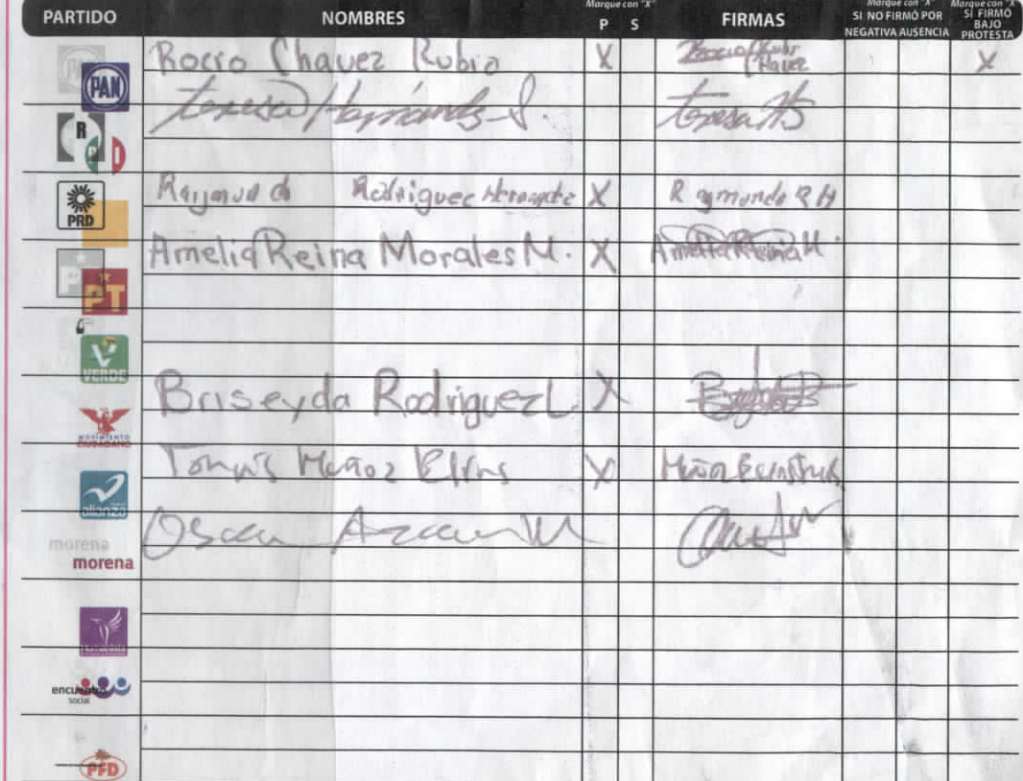 PARTIDO NOMBRES Marque con "X" P S FIRMAS Marque con "X" SI NO FIRMÓ POR NEGATIVA AUSENCIA Marque con "X" SI FIRMÓ BAJO PROTESTA
PAN Rocio Chavez Rubio X Rocio Chavez X
teresa Hernández S. teresa HS
PRI
PRD Raymundo Rodriguez X Raymundo R H
Amelia Reina Morales M. X Amelia Reina M
PT
VERDE
Briseyda Rodriguez L. X
MOVIMIENTO CIUDADANO
Tomás Muñoz X Muñoz
alianza
Oscar
morena
morena
encuentro social
PFD